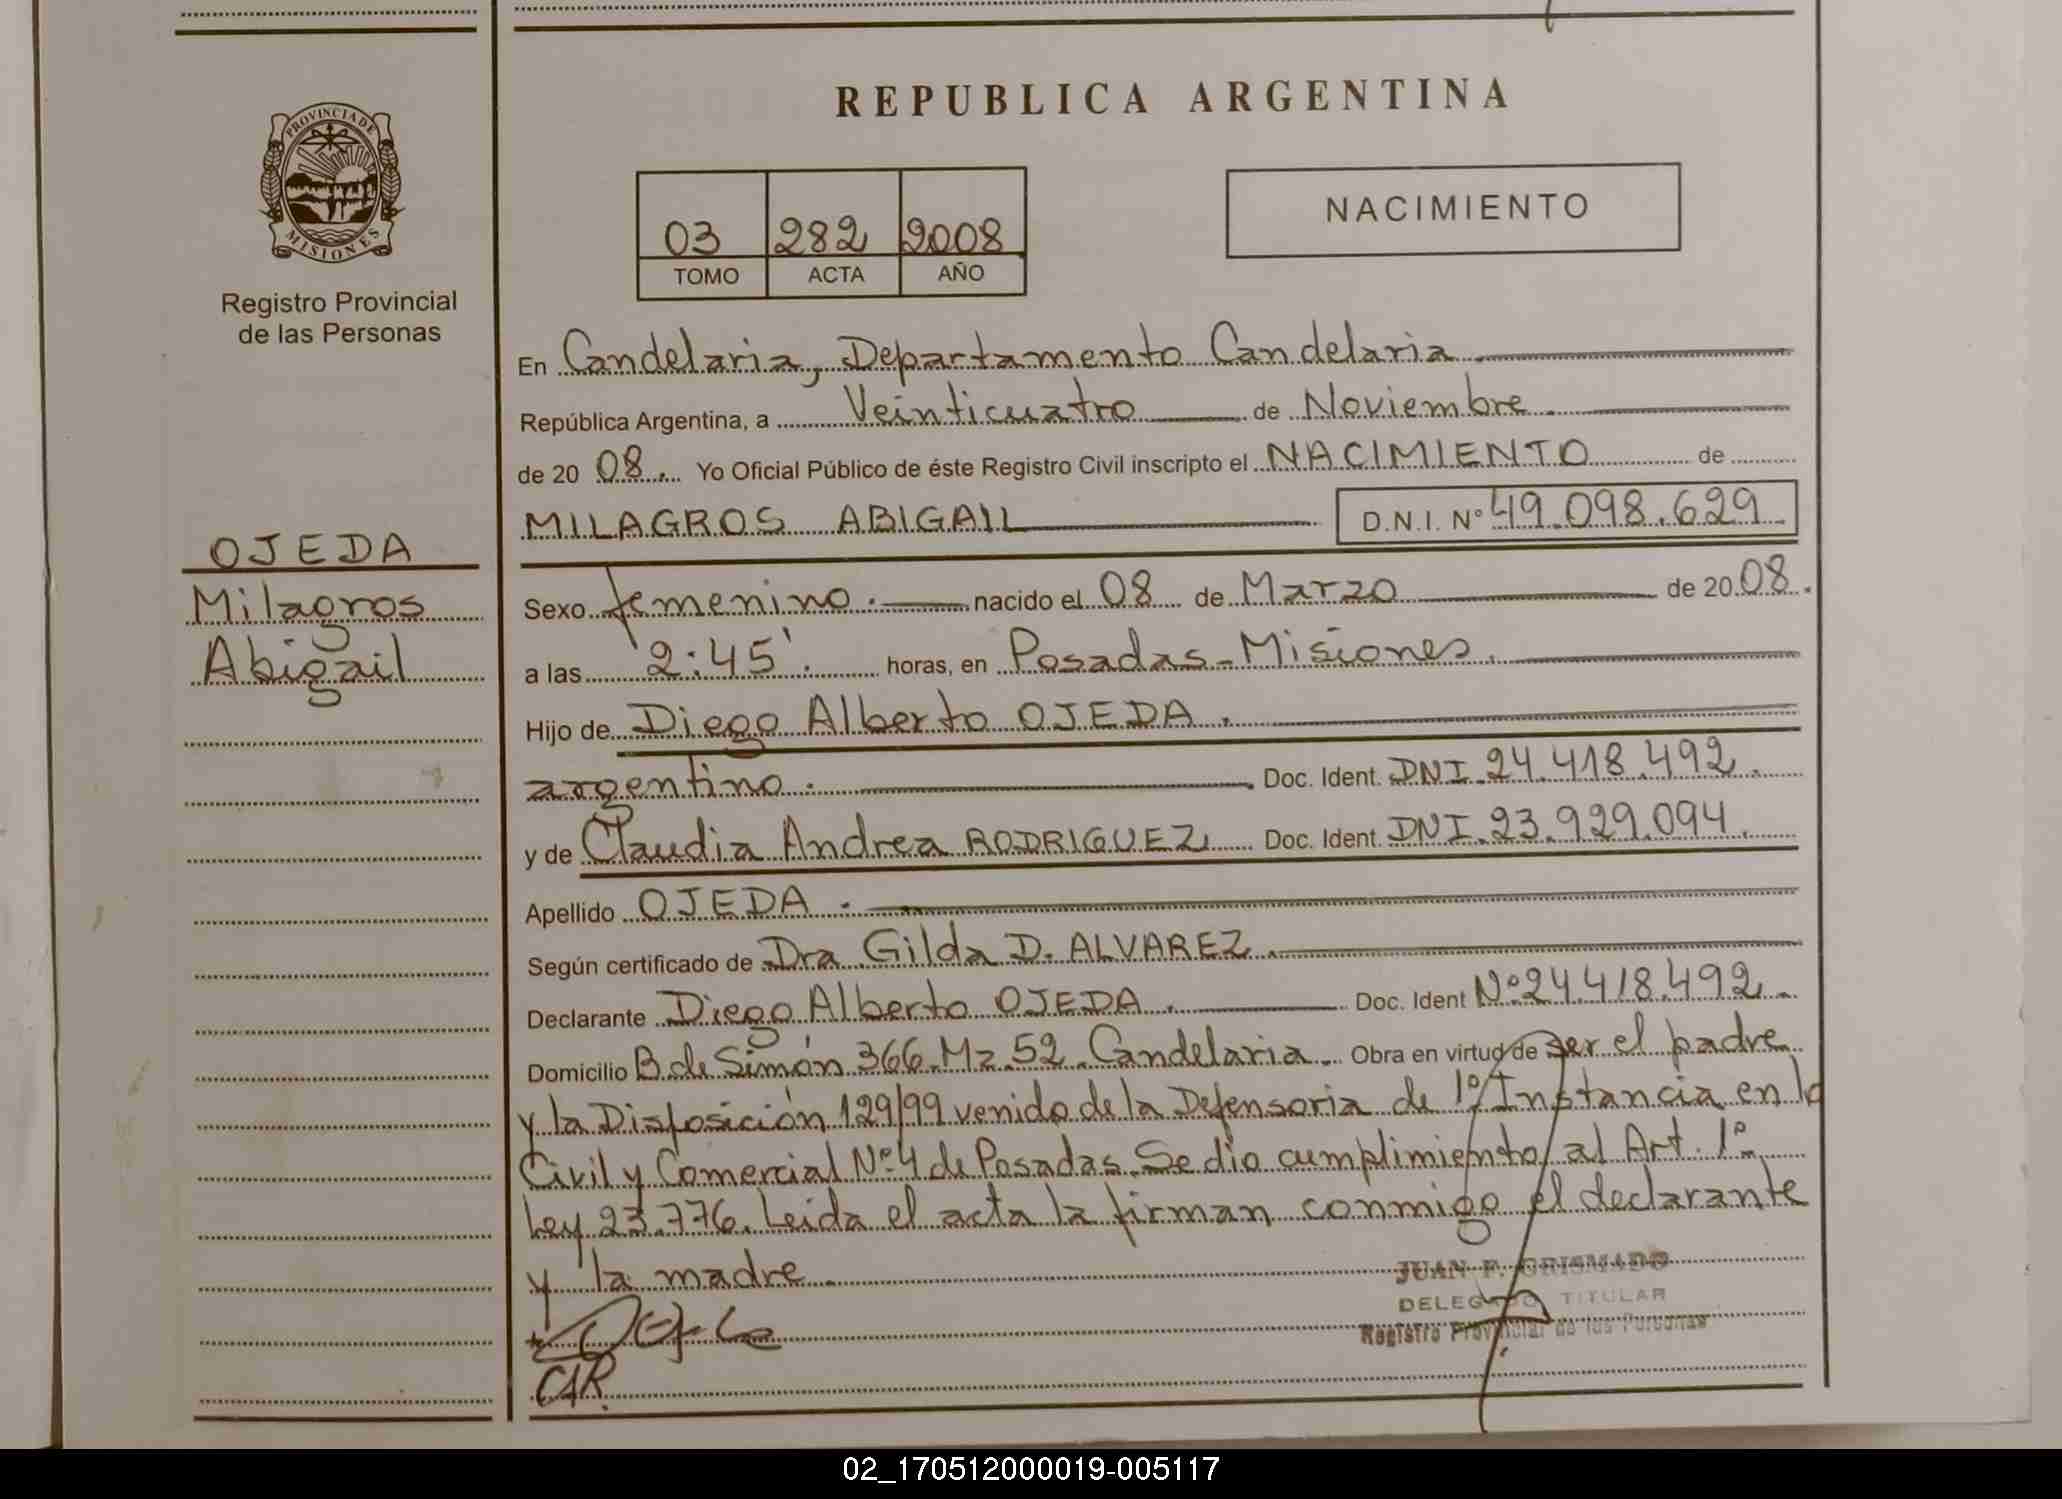 REPUBLICA ARGENTINA
PROVINCIA DE
MISIONES
Registro Provincial
de las Personas
03 282 2008
TOMO ACTA AÑO
NACIMIENTO
En Candelaria, Departamento Candelaria
República Argentina, a Veinticuatro de Noviembre
de 20 08. Yo Oficial Público de éste Registro Civil inscripto el NACIMIENTO de
MILAGROS ABIGAIL D.N.I. Nº 49.098.629
OJEDA
Milagros
Abigail
Sexo femenino. nacido el 08 de Marzo de 20 08.
a las '2:45'. horas, en Posadas-Misiones.
Hijo de Diego Alberto OJEDA.
argentino. Doc. Ident. DNI.24.418.492.
y de Claudia Andrea RODRIGUEZ Doc. Ident. DNI.23.929.094.
Apellido OJEDA.
Según certificado de Dra Gilda D. ALVAREZ.
Declarante Diego Alberto OJEDA. Doc. Ident Nº24.418.492.
Domicilio B. de Simón 366.Mz.52. Candelaria. Obra en virtud de ser el padre
y la Disposición 129/99 venido de la Defensoria de 1º Instancia en lo
Civil y Comercial Nº4 de Posadas. Se dio cumplimiento al Art. 1º
Ley 23.776. Leida el acta la firman conmigo el declarante
y la madre.
JUAN F. GRISMADO
DELEGADO TITULAR
Registro Provincial de las Personas
CAR.
02_170512000019-005117